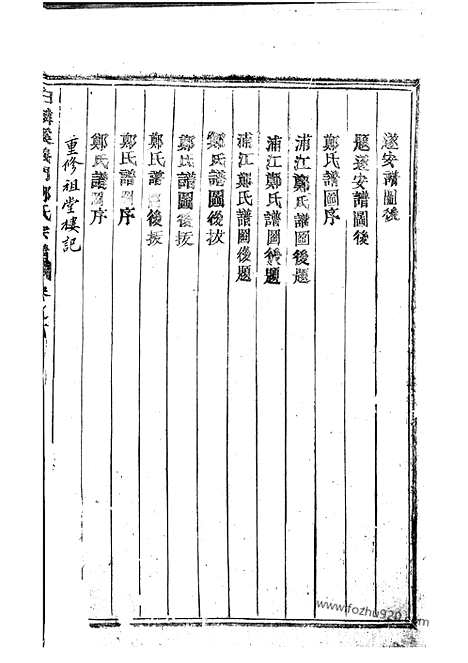 遂安譜圖後
題遂安譜圖後
鄭氏譜圖序
浦江鄭氏譜圖後題
浦江鄭氏譜圖後題
浦江鄭氏譜圖後題
鄭氏譜圖後拔
鄭氏譜圖後拔
鄭氏譜 後拔
鄭氏譜圖序
鄭氏譜圖序
重修祖堂樓記
白麟溪義門鄭氏宗譜 卷之
www.fozhu920.com